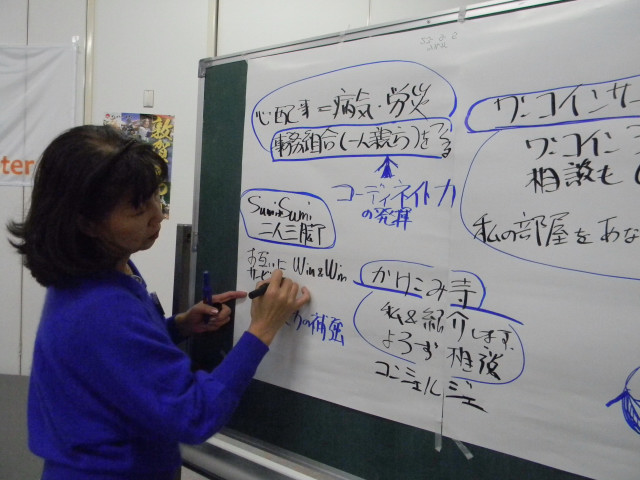 心配事=病気・労災
事務組合(一人親方)をつくる
コーディネイト力
の発揮
SumiSumi
二人三脚
お互いに Win&Win
サービス
の補強
かけこみ寺
私&紹介します。
よろず相談
コンシェルジェ
ワンコインサ
ワンコイン
相談も
私の部屋をあな
ter